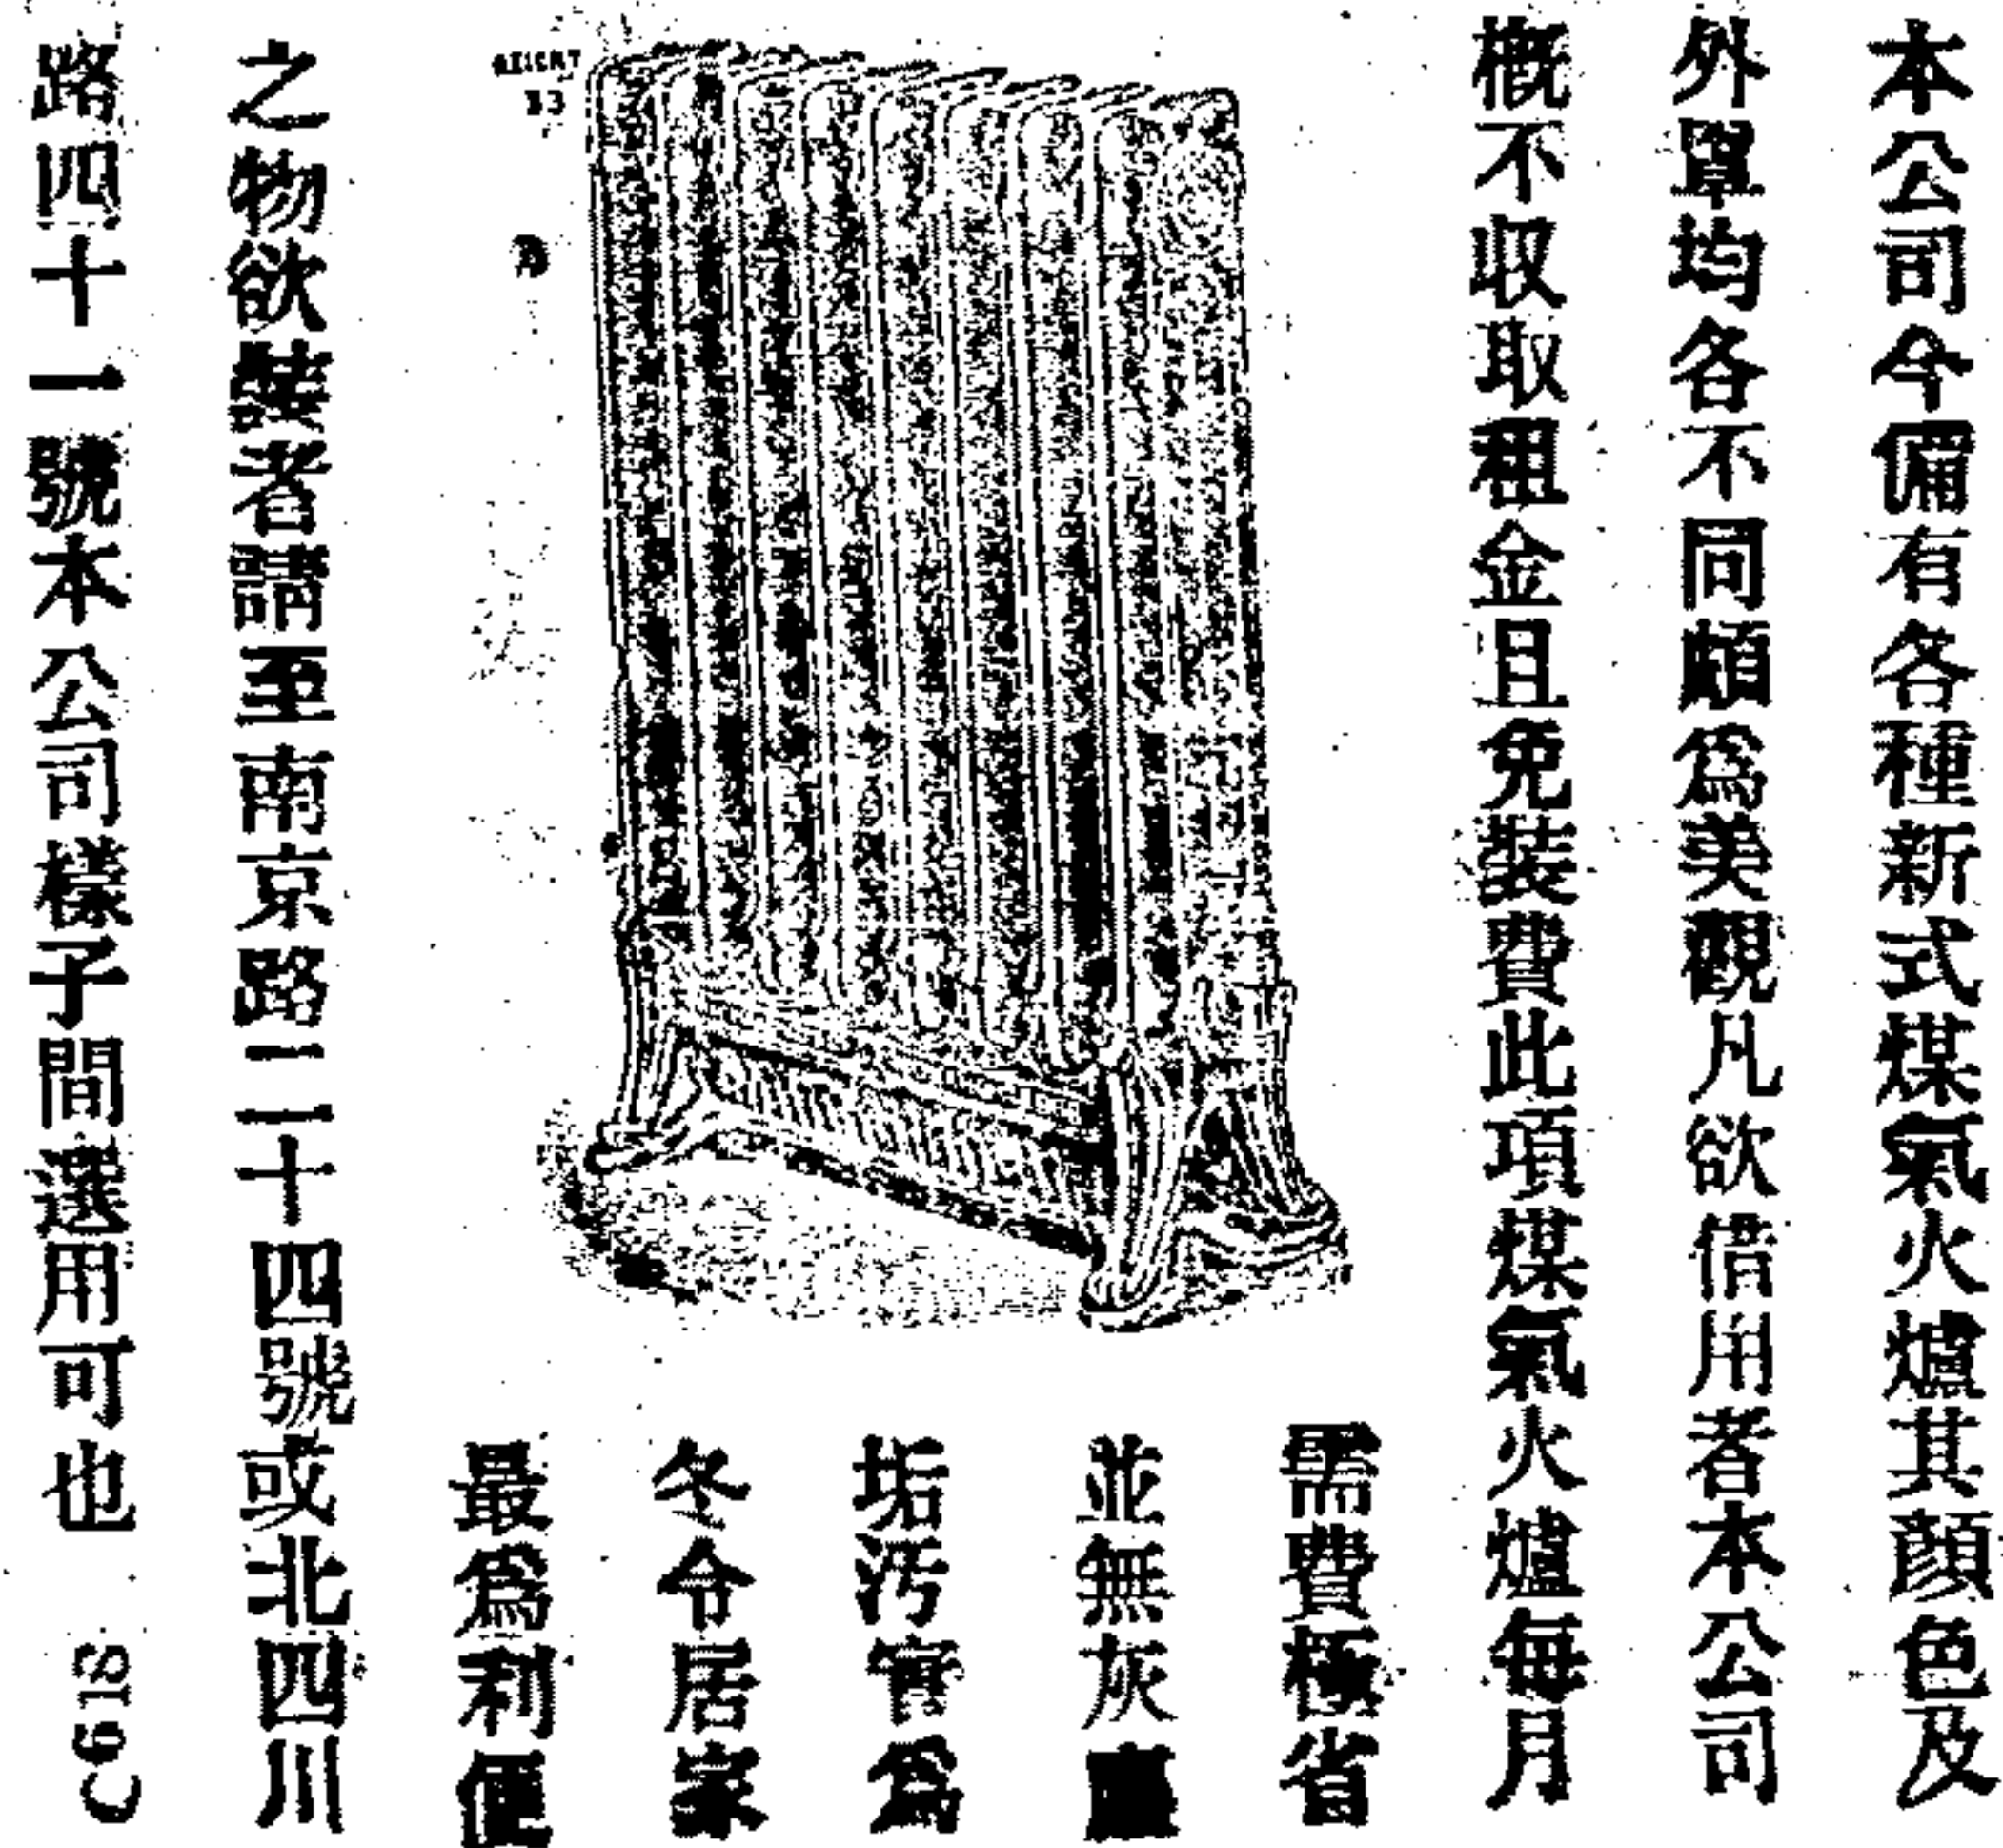 本公司今備有各種新式煤氣火爐其顏色及
外罩均各不同頗爲美觀凡欲借用者本公司
概不收取租金且免裝費此項煤氣火爐每月
需費極省
並無灰塵
垢污實爲
冬令居家
最爲利便
之物欲裝者請至南京路二十四號或北四川
路四十一號本公司樣子間選用可也
C618